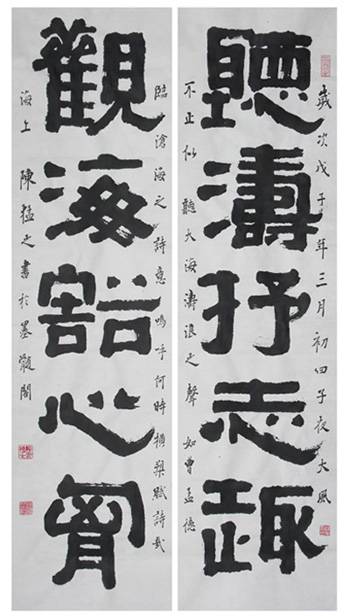 聽濤抒志趣
歲次戊子年三月初四子夜大風
不止似聽大海濤浪之聲如曹孟德
觀海豁心胷
臨滄海之詩意嗚呼何時橫槊賦詩哉
海上陳猛之書於墨閣